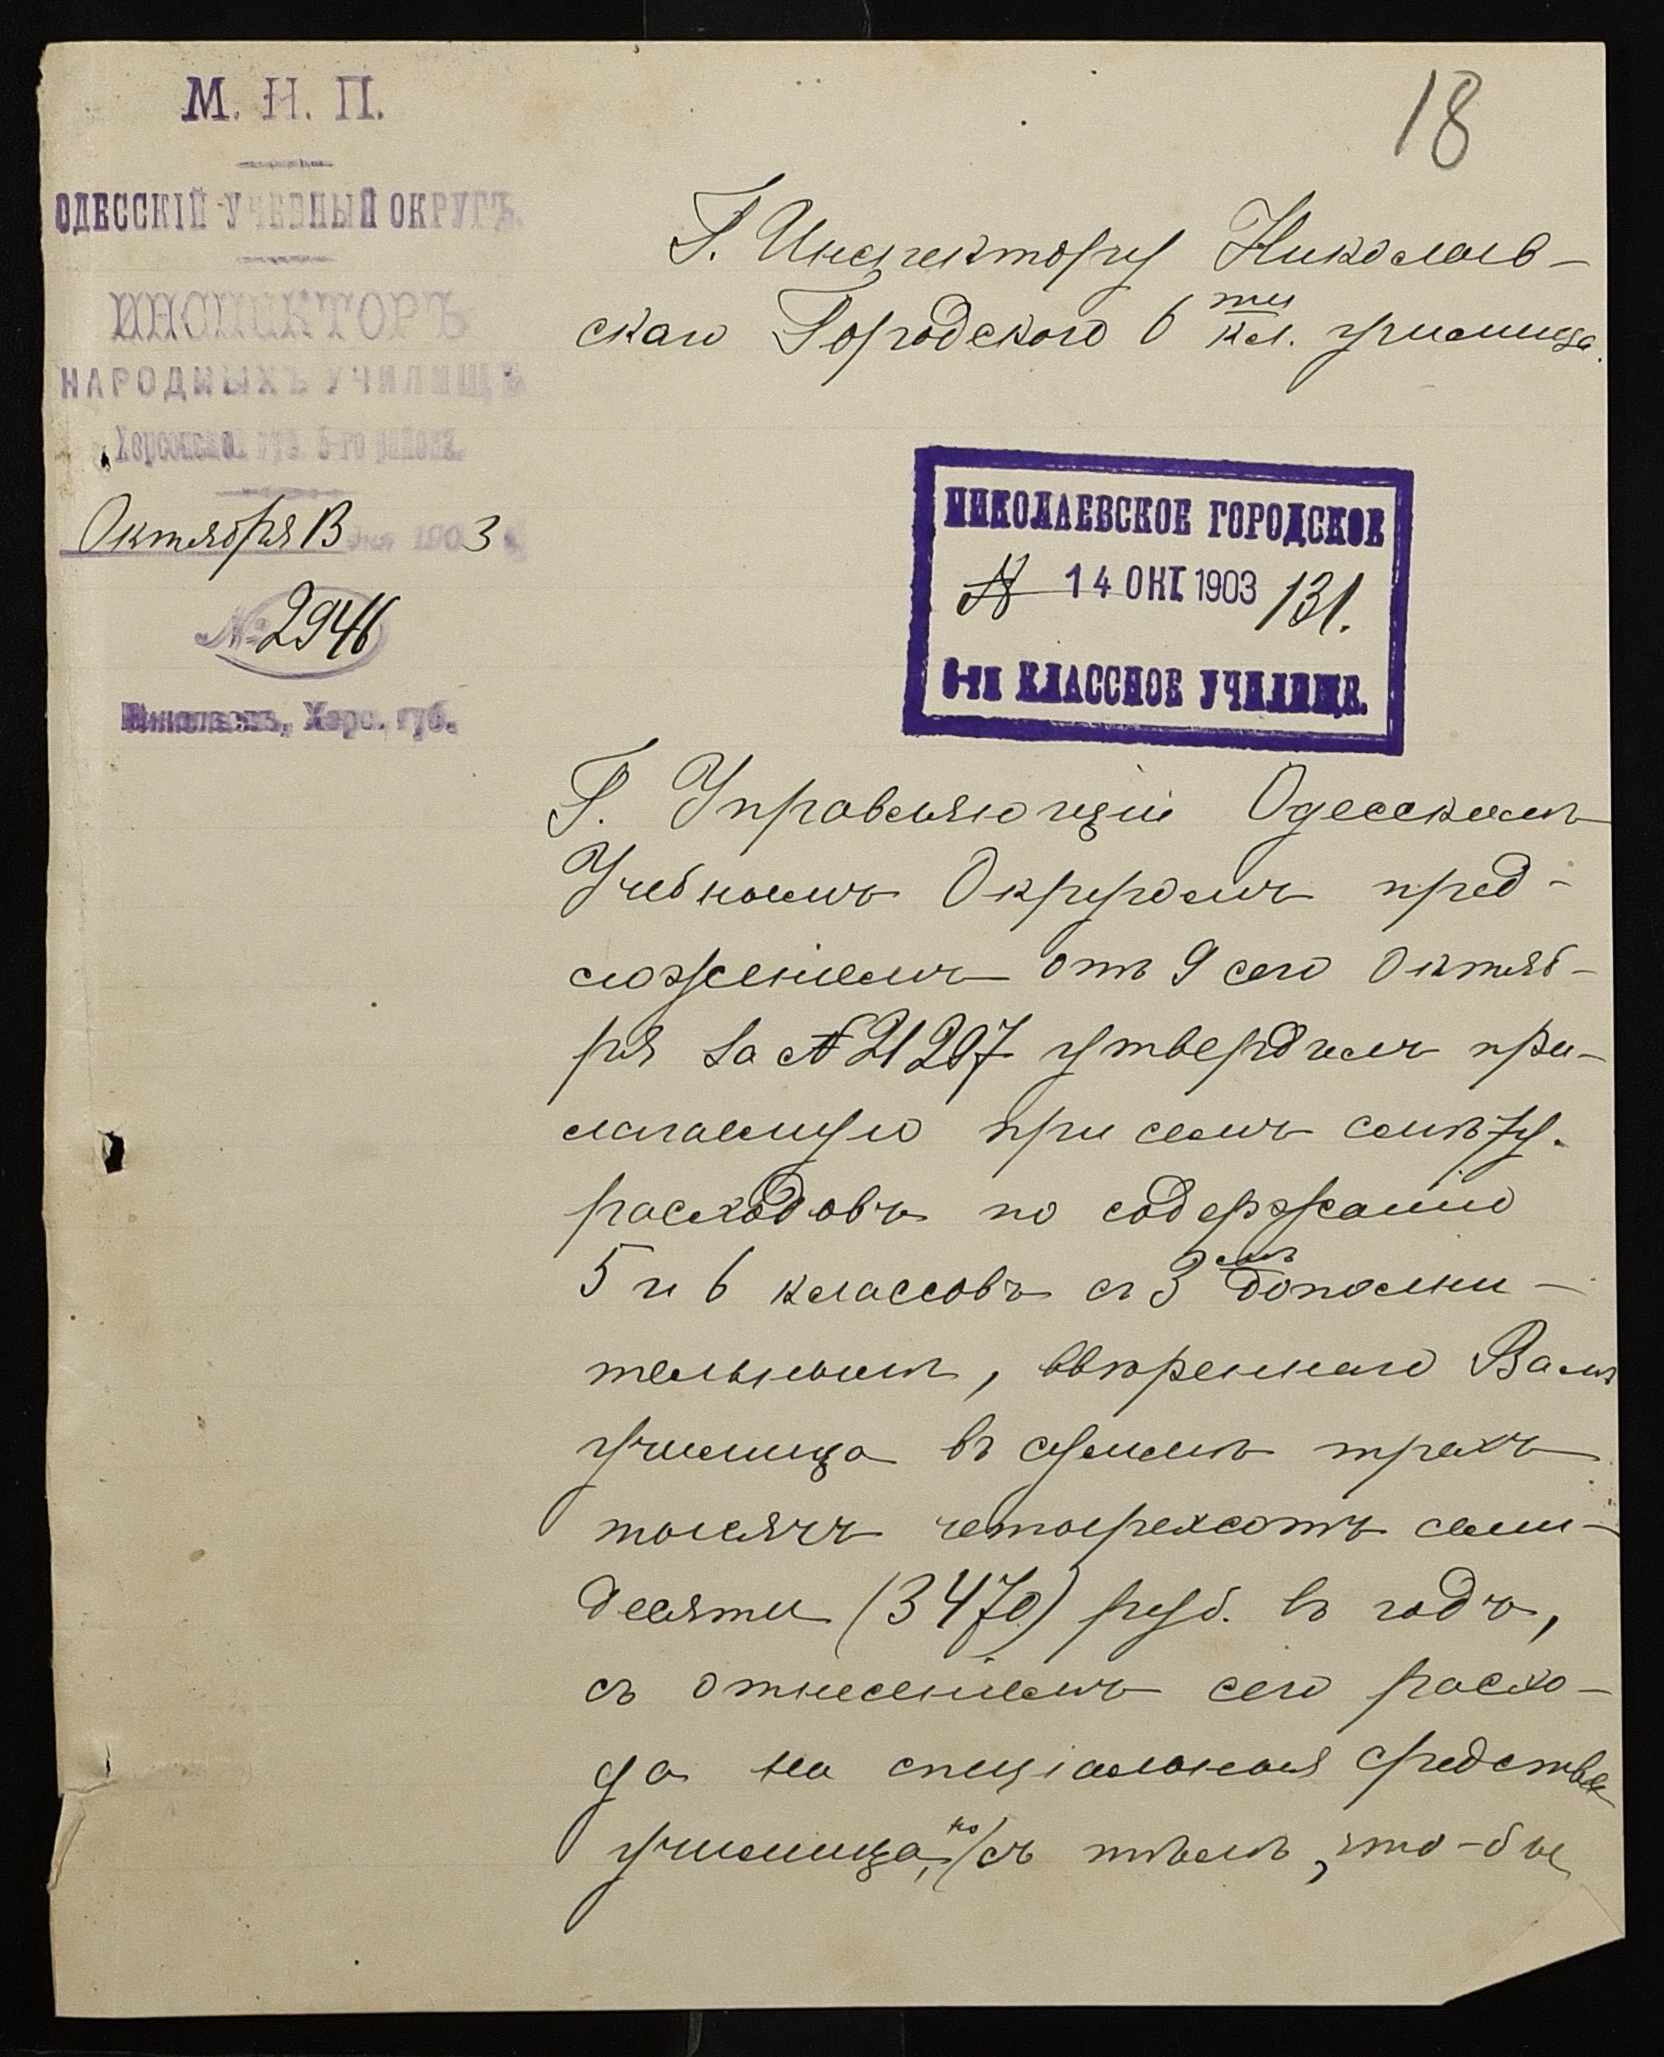 18
М. Н. П.
ОДЕССКІЙ УЧЕБНЫЙ ОКРУГЪ.
ИНСПЕКТОРЪ
НАРОДНЫХЪ УЧИЛИЩЪ
Херсонской губ. 6-го района.
Октября 13 дня 1903 г.
№ 2946
Николаевъ, Херс. губ.
Г. Инспектору Николаев-
скаго Городского 6 ти кл. училища.
НИКОЛАЕВСКОЕ ГОРОДСКОЕ
№ 14 ОКТ 1903 131.
6-ти КЛАССНОЕ УЧИЛИЩЕ.
Г. Управляющій Одесскимъ
Учебнымъ Округомъ пред-
ложеніемъ отъ 9 сего Октяб-
ря за № 21207 утвердилъ при-
лагаемую при семъ смѣту
расходовъ по содержанію
5 и 6 классовъ съ 3 мъ дополни-
тельнымъ, ввѣреннаго Вамъ
училища въ суммѣ трехъ
тысячъ четырехсотъ семи-
десяти (3470) руб. въ годъ,
съ отнесеніемъ сего расхо-
да на спеціальныя средства
училища, но съ тѣмъ, что-бы